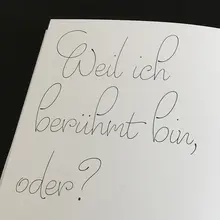 Weil ich
berühmt bin,
oder?